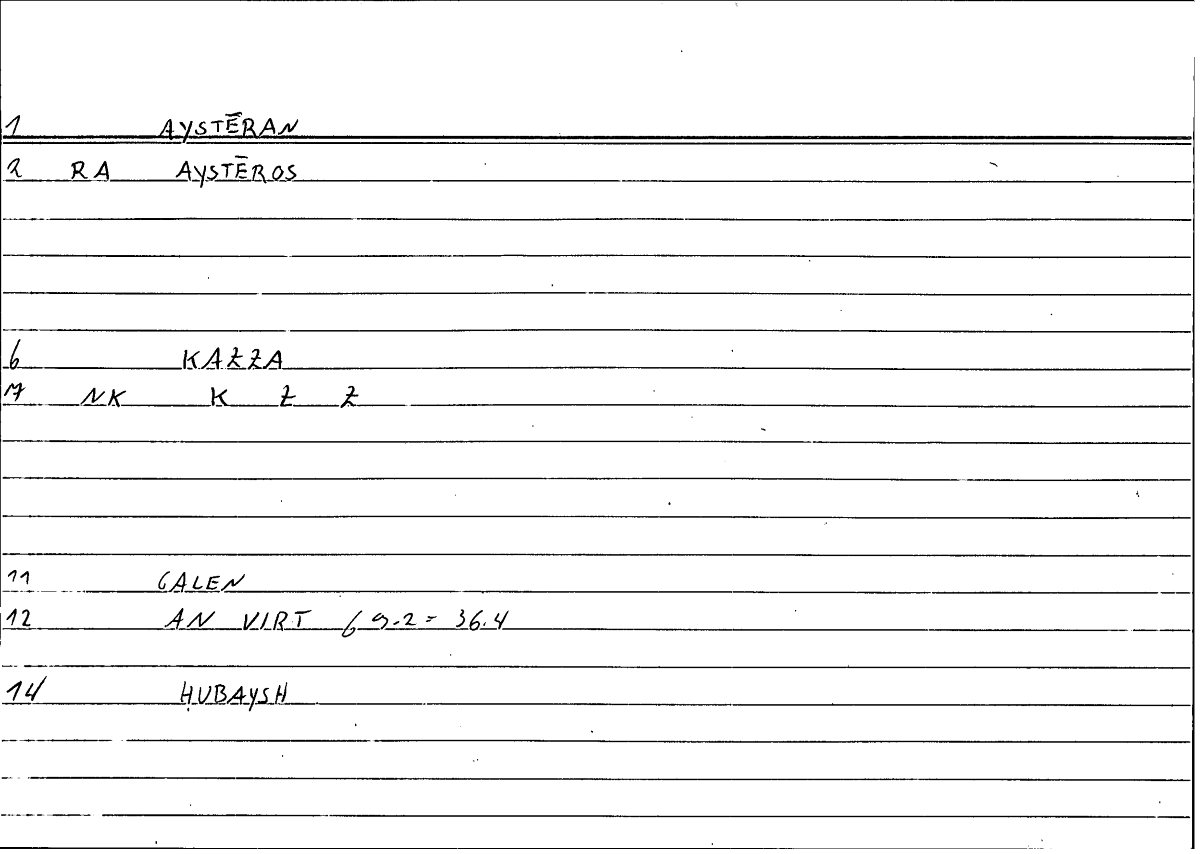 1 AYSTĒRAN
2 RA AYSTĒROS
6 KAẔẔA
7 NK K Ẕ Ẕ
11 GALEN
12 AN VIRT 6 9.2 = 36.4
14 ḤUBAYSH